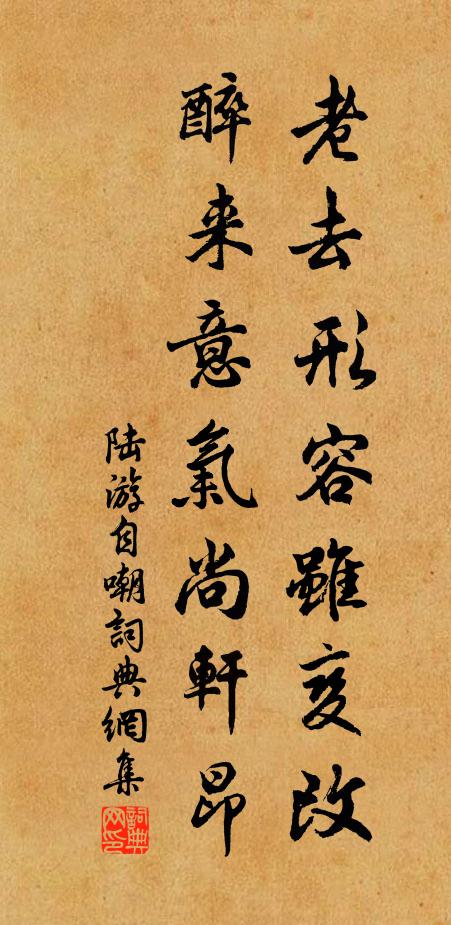 老去形容雖变改
醉来意氣尚軒昂
陆游自嘲詞典網集
詞典网印